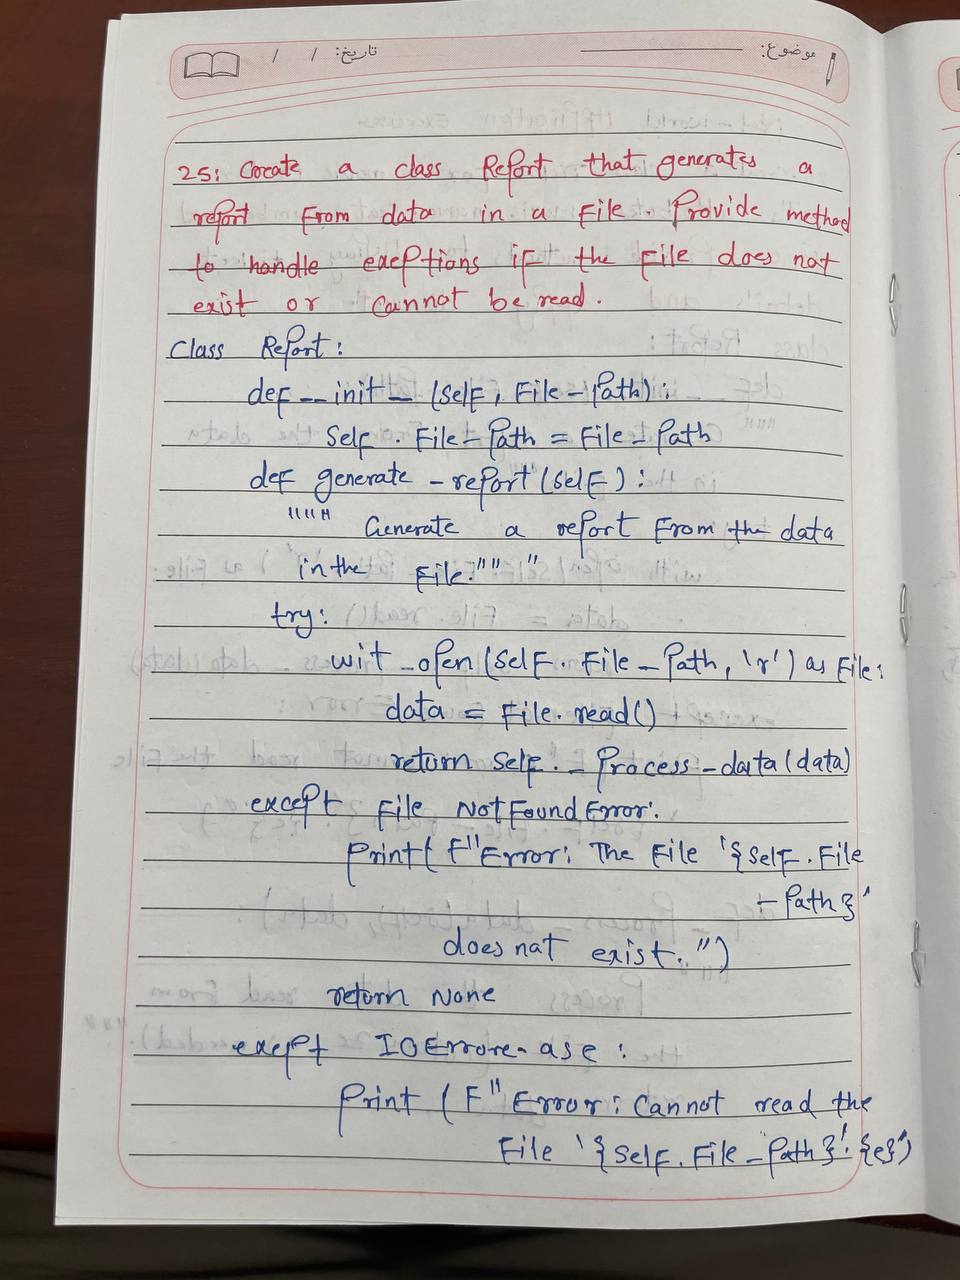 موضوع: تاریخ: / /
25: Create a class Report that generates a
report From data in a File. Provide method
to handle exceptions if the File does not
exist or cannot be read.
Class Report:
def __init_ (Self, File-Path):
Self. File_Path = File_Path
def generate -report(Self):
""""" Generate a report From the data
in the File.""" "
try:
wit _open (Self. File_Path, 'r') as File:
data = File.read()
return Self. _Process-data(data)
except File NotFoundError:
Print( F"Error: The File '{Self.File
-Path}'
does not exist.")
return None
exept IOErrore as e:
Print (F"Error: Cannot read the
File '{Self.File_Path}'. {e}')